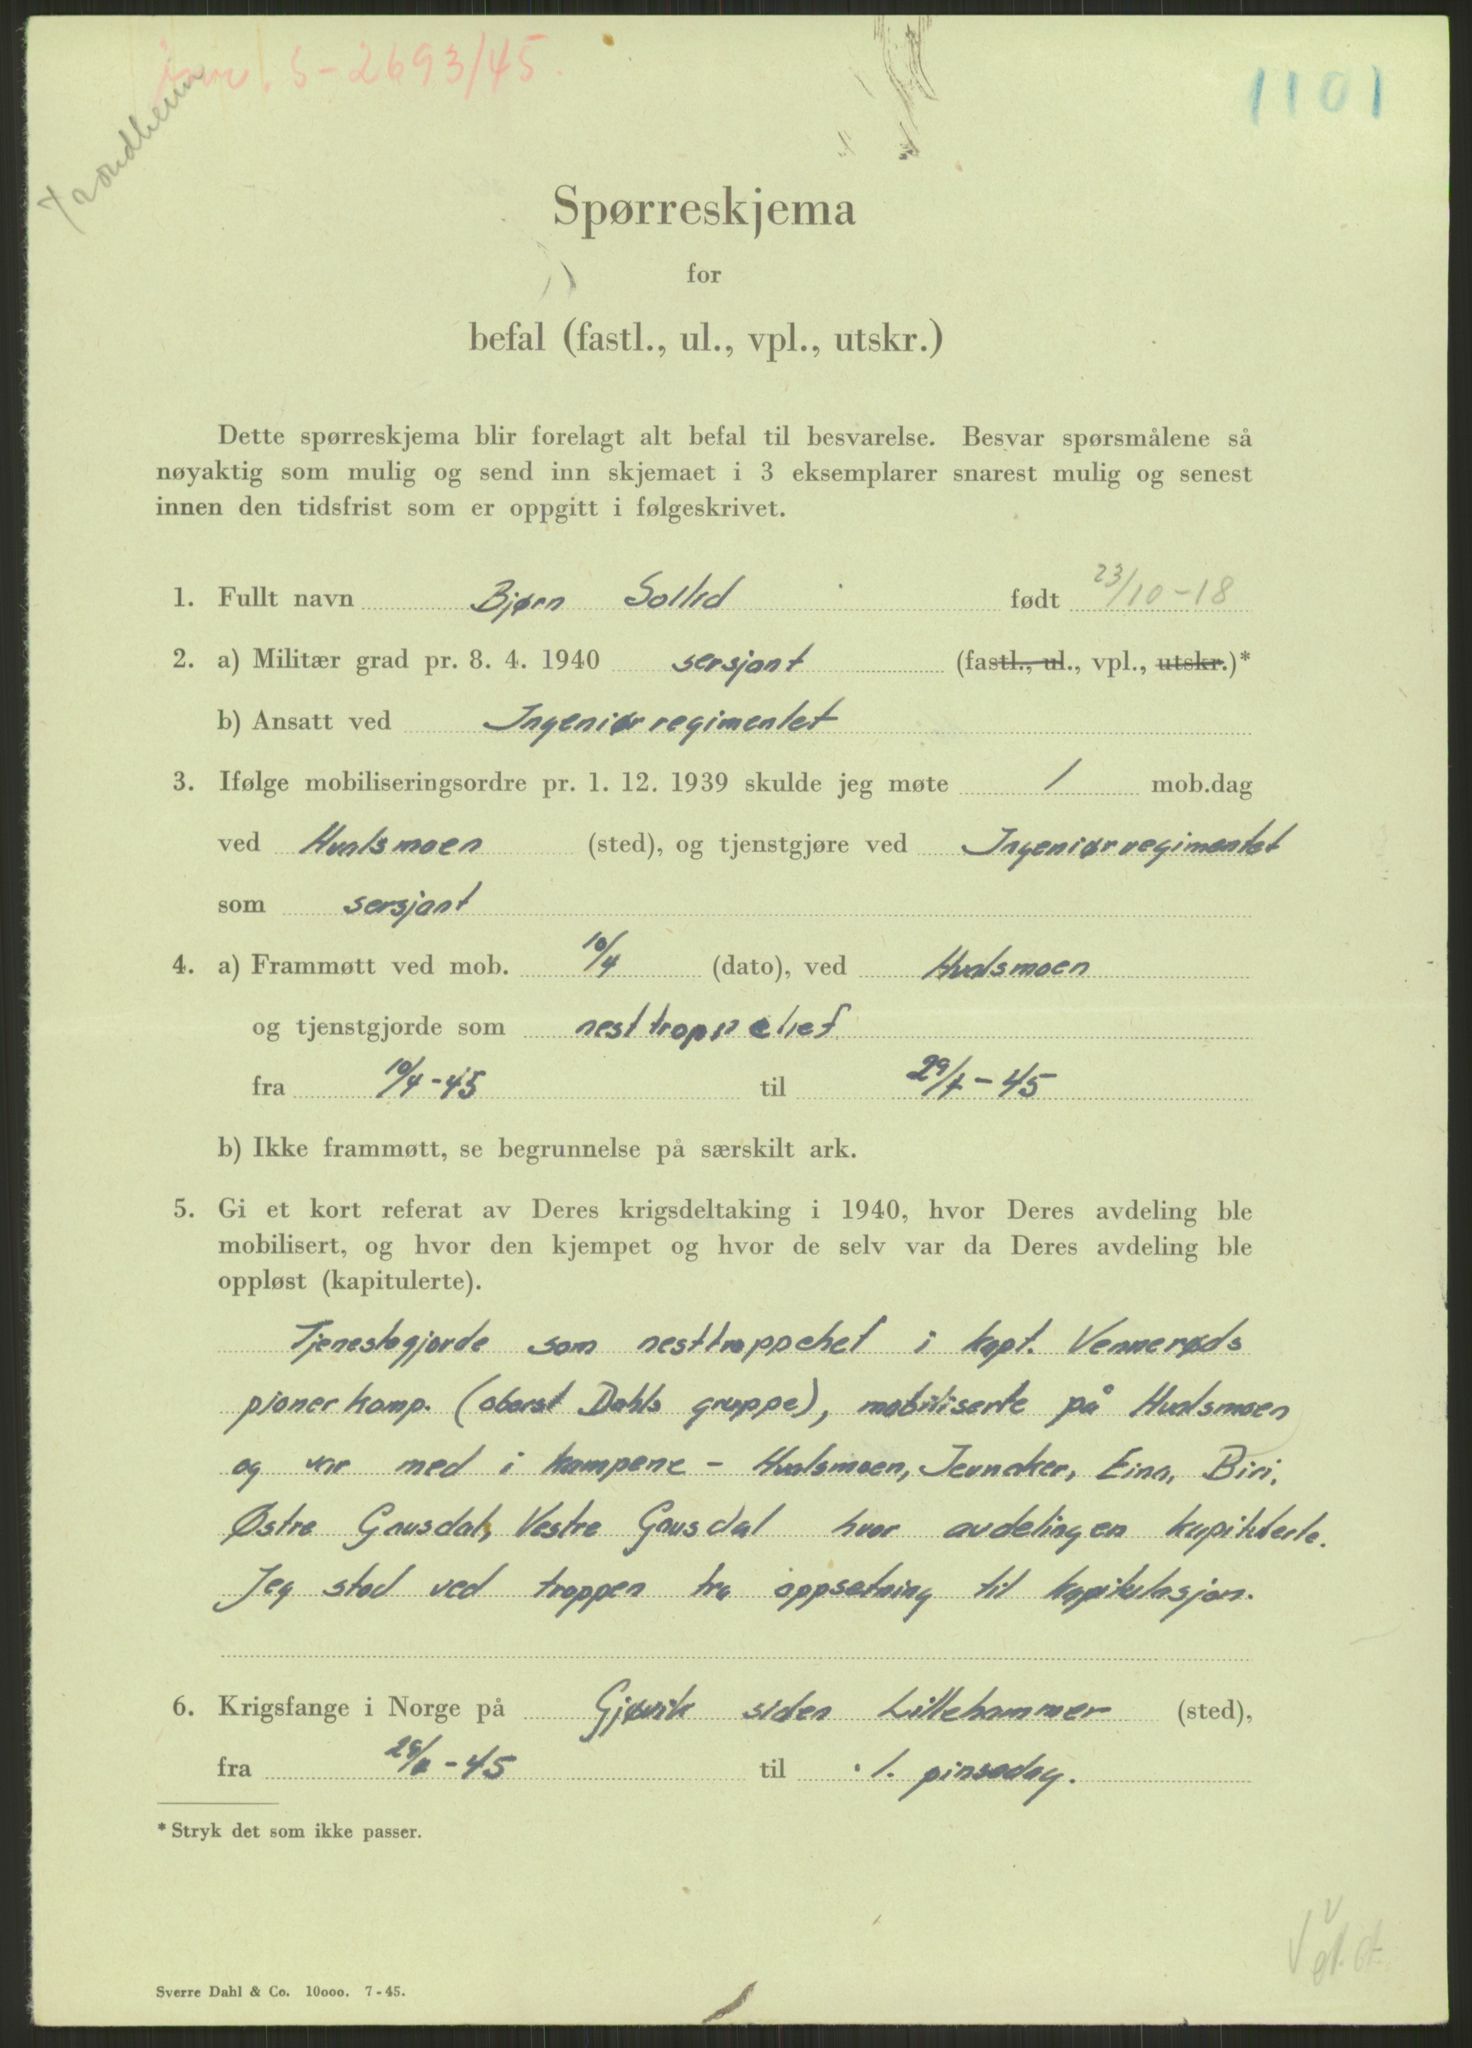 Jnr. S-2693/45.
1101
Trondheim
Spørreskjema
for
befal (fastl., ul., vpl., utskr.)
Dette spørreskjema blir forelagt alt befal til besvarelse. Besvar spørsmålene så
nøyaktig som mulig og send inn skjemaet i 3 eksemplarer snarest mulig og senest
innen den tidsfrist som er oppgitt i følgeskrivet.
1. Fullt navn Bjørn Sollid født 23/10-18
2. a) Militær grad pr. 8. 4. 1940 sersjant (fastl., ul., vpl., utskr.)*
b) Ansatt ved Ingeniørregimentet
3. Ifølge mobiliseringsordre pr. 1. 12. 1939 skulde jeg møte 1 mob.dag
ved Hvalsmoen (sted), og tjenstgjøre ved Ingeniørregimentet
som sersjant
4. a) Frammøtt ved mob. 10/4 (dato), ved Hvalsmoen
og tjenstgjorde som nesttroppschef
fra 10/4-45 til 29/4-45
b) Ikke frammøtt, se begrunnelse på særskilt ark.
5. Gi et kort referat av Deres krigsdeltaking i 1940, hvor Deres avdeling ble
mobilisert, og hvor den kjempet og hvor de selv var da Deres avdeling ble
oppløst (kapitulerte).
Tjenestegjorde som nesttroppchef i kapt. Vennerøds
pionerkomp. (oberst Dahls gruppe), mobiliserte på Hvalsmoen
og var med i kampene - Hvalsmoen, Jevnaker, Eina, Biri,
Østre Gausdal, Vestre Gausdal hvor avdelingen kapitulerte.
Jeg stod ved troppen fra oppsetning til kapitulasjon.
6. Krigsfange i Norge på Gjøvik siden Lillehammer (sted),
fra 28/4-45 til 1. pinsedag.
* Stryk det som ikke passer.
Sverre Dahl & Co. 10000. 7-45.